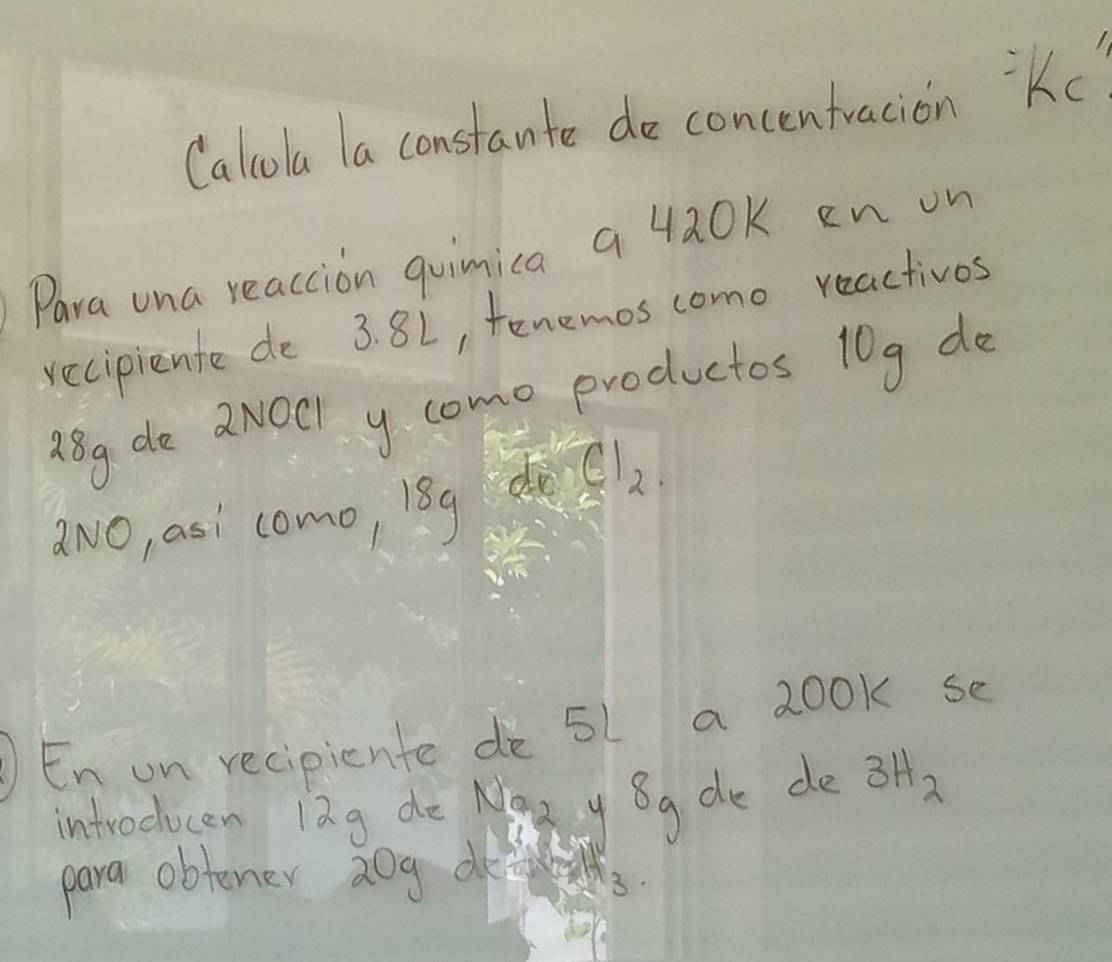 Calcula la constante de concentración "Kc".
Para una reacción química a 420K en un
recipiente de 3.8L, tenemos como reactivos
28g de 2NOCl y como productos 10g de
2NO, así como, 18g de Cl₂.
En un recipiente de 5L a 200K se
introducen 12g de Na₂ y 8g de de 3H₂
para obtener 20g de